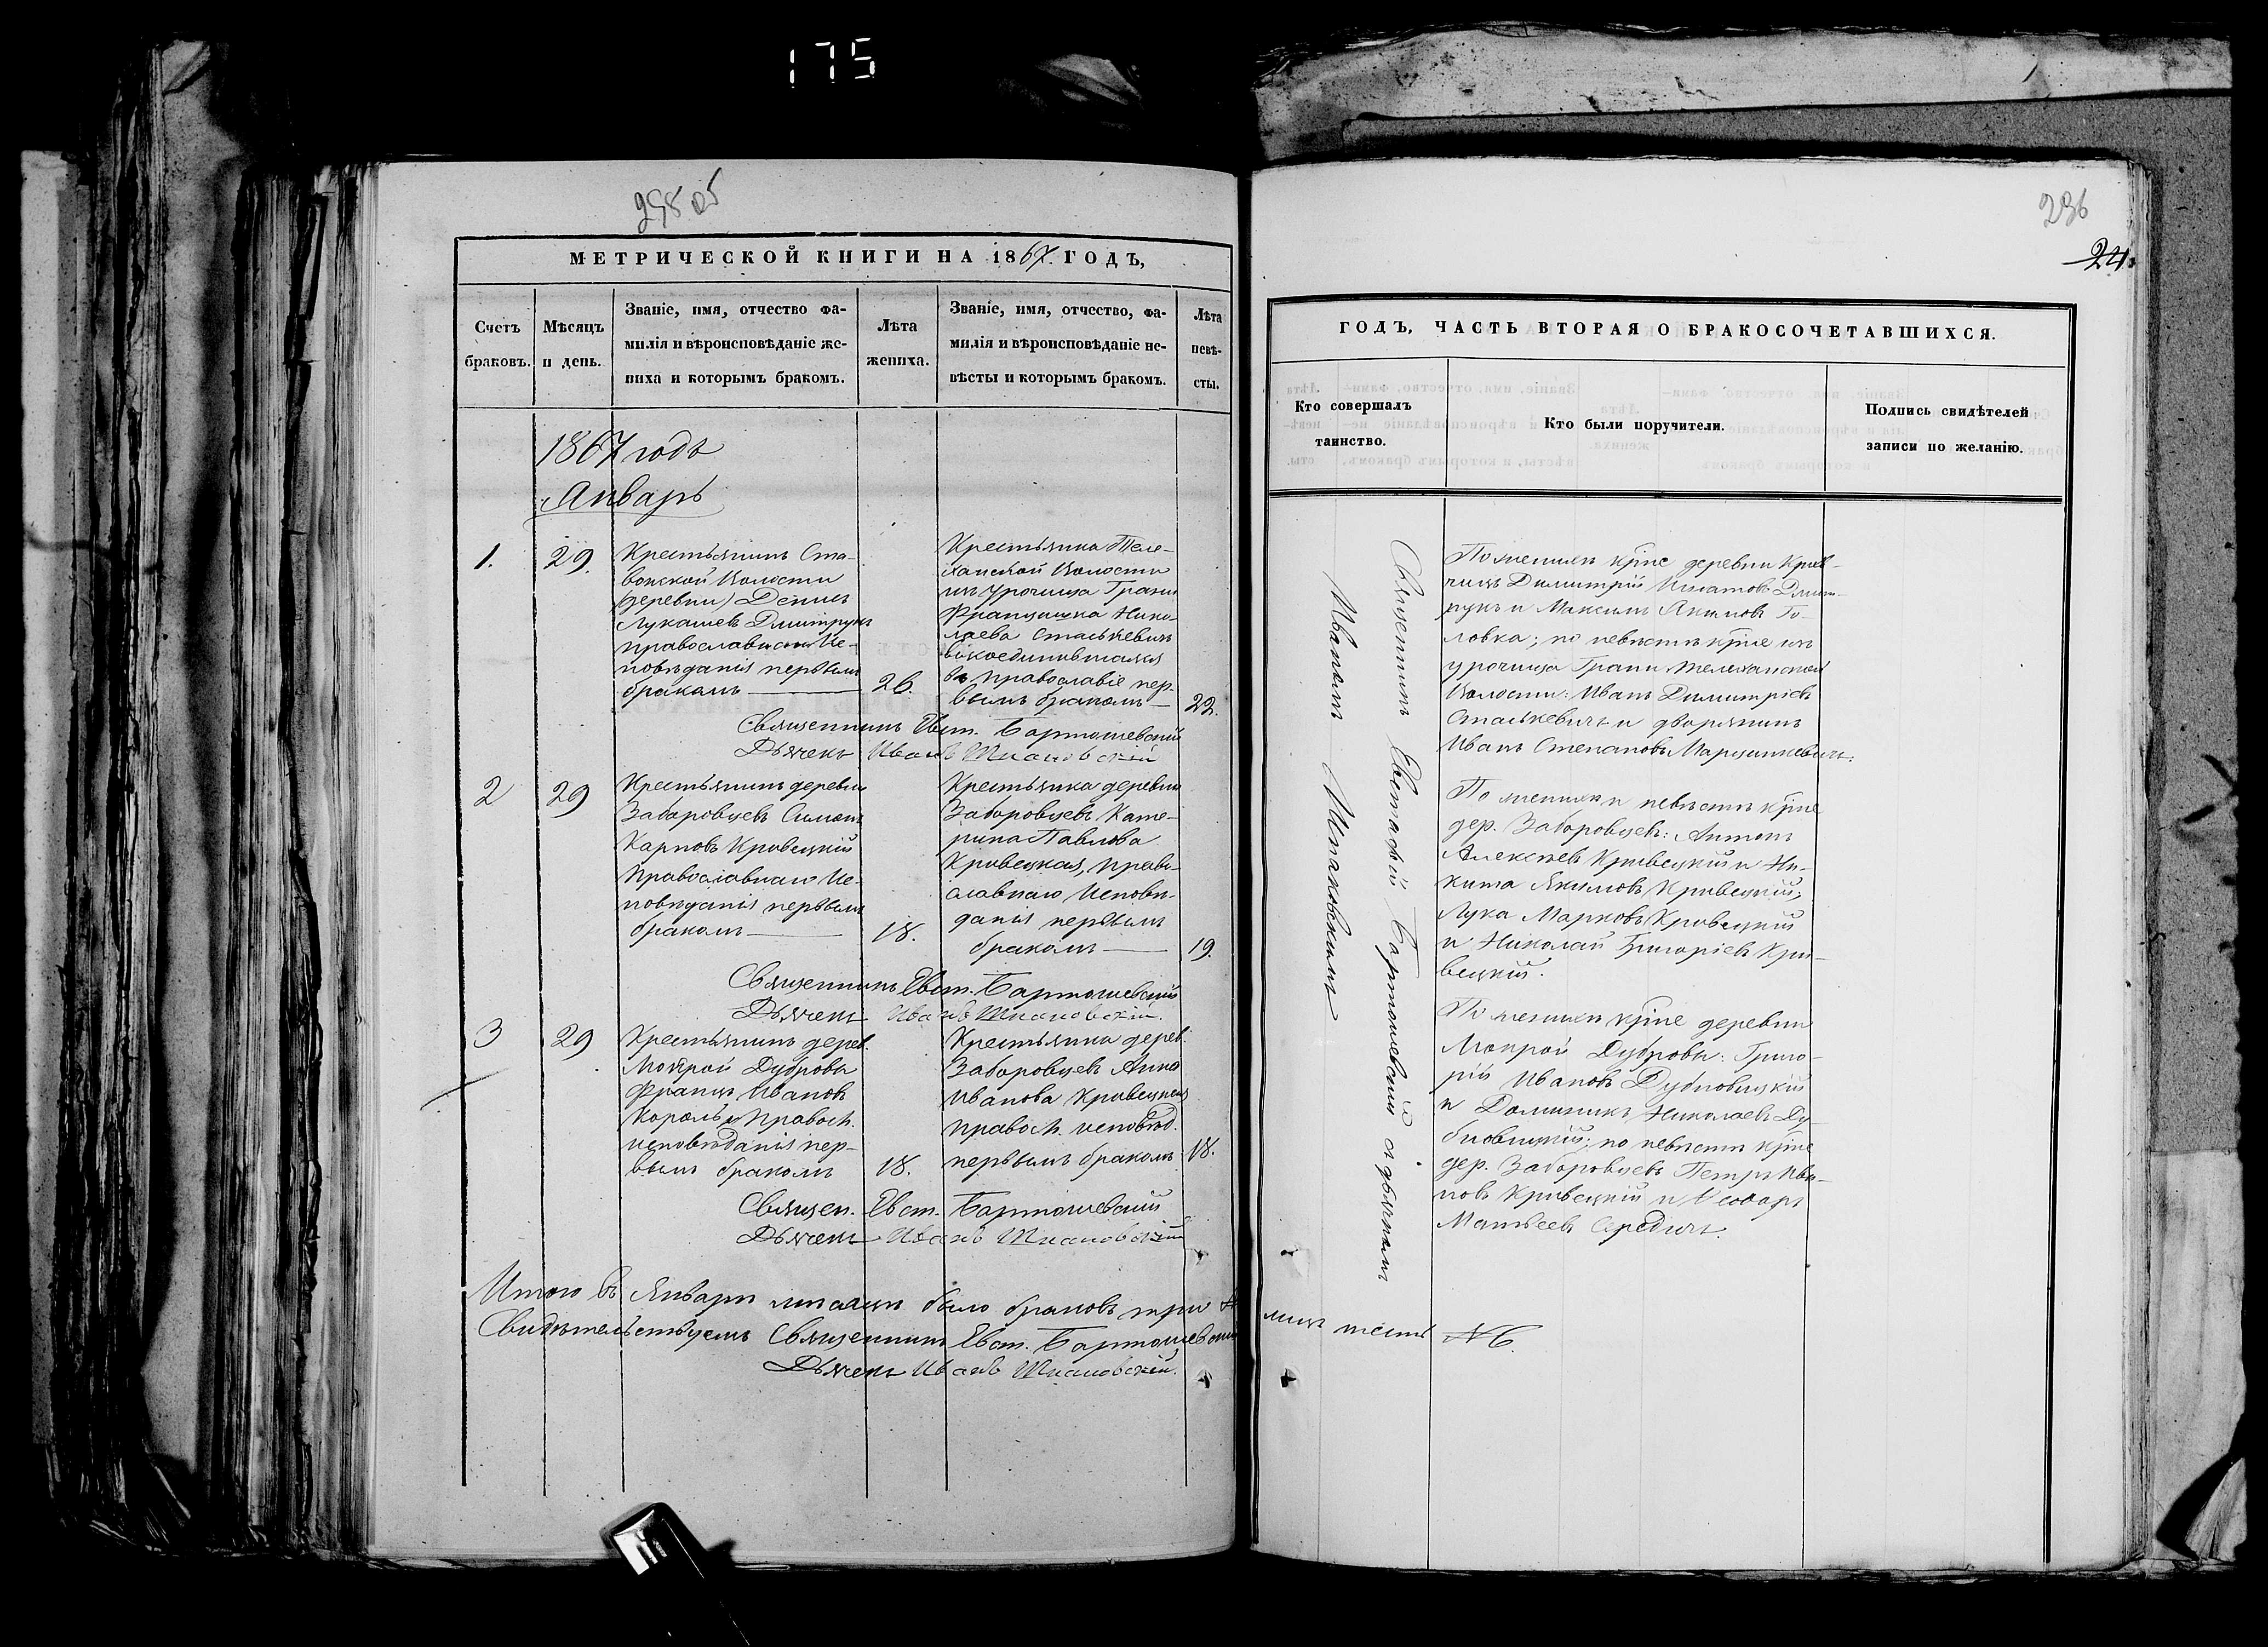 175
295 об
МЕТРИЧЕСКОЙ КНИГИ НА 1867. ГОДЪ,
Счетъ
браковъ.
Мѣсяцъ
и день.
Званіе, имя, отчество фа-
милія и вѣроисповѣданіе же-
ниха и которымъ бракомъ.
Лѣта
жениха.
Званіе, имя, отчество, фа-
милія и вѣроисповѣданіе не-
вѣсты и которымъ бракомъ.
Лѣта
невѣ-
сты.
1867 годъ
Январь
1.
29.
Крестьянинъ Ста-
вокской Волости
деревни
Лукашевъ Дмитрукъ
православнаго Ис-
повѣданія первымъ
бракомъ
26.
Крестьянка Теле-
ханской Волости
изъ Урочища Грани
Францишка Нико-
лаева Стаськевичъ
въ православіе пер-
вымъ бракомъ
22.
Священникъ Евст. Бартошевскій
Дьячекъ Иванъ Шпаковскій
2
29
Крестьянинъ деревни
Заборовцевъ Симонъ
Карповъ Кривецкій
Православнаго Ис-
повѣданія первымъ
бракомъ
18.
Крестьянка деревни
Заборовцевъ Кате-
рина Павлова
Кривецкая, Право-
славнаго Исповѣ-
данія первымъ
бракомъ
19.
Священникъ Евст. Бартошевскій
Дьячекъ Иванъ Шпаковскій.
3
29
Крестьянинъ дерев.
Мокрой Дубровы
Францъ Ивановъ
Король Правосл.
исповѣданія пер-
вымъ бракомъ
18.
Крестьянка дерев.
Заборовцевъ Анна
Иванова Кривецкая
правосл. исповѣд.
первымъ бракомъ
18.
Священ. Евст. Бартошевскій
Дьячекъ Иванъ Шпаковскій
Итого въ Январѣ мѣсяцѣ было браковъ три
Свидѣтельствуемъ Священникъ Евст. Бартошевскій
Дьячекъ Иванъ Шпаковскій.
236
24.
ГОДЪ, ЧАСТЬ ВТОРАЯ О БРАКОСОЧЕТАВШИХСЯ.
Кто совершалъ
таинство.
Кто были поручители.
Подпись свидѣтелей
записи по желанію.
Священникъ Евстафій Бартошевскій съ дьячкомъ
Иваномъ Шпаковскимъ
По женихѣ крѣне деревни Крив-
чицъ Димитрій Игнатовъ Дмит-
рукъ и Максимъ Якимовъ Го-
ловка; по невѣстѣ крѣне изъ
урочища Грани Телеханской
Волости: Иванъ Димитріевъ
Стаськевичъ и дворянинъ
Иванъ Степановъ Марцинкевичъ.
По женихѣ и невѣстѣ крѣне
дер. Заборовцевъ: Антонъ
Алексѣевъ Кривецкій и Ни-
кита Якимовъ Кривецкій;
Лука Марковъ Кривецкій
и Николай Григоріевъ Кри-
вецкій.
По женихѣ крѣне деревни
Мокрой Дубровы: Григо-
рій Ивановъ Дубновицкій
и Доминикъ Николаевъ Ду-
бновицкій; по невѣстѣ крѣне
дер. Заборовцевъ Петръ Ива-
новъ Кривецкій и
Матвеевъ Середичъ.
лицъ шесть № 6.